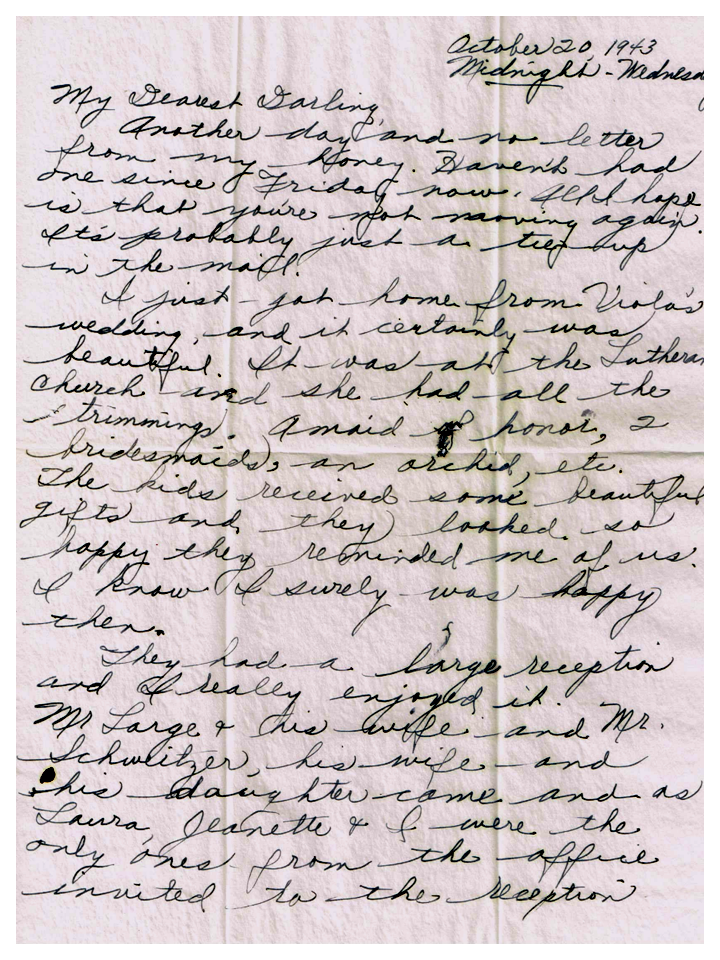 October 20, 1943
Midnight - Wednesd
My Dearest Darling,
Another day and no letter
from my Honey. Haven't had
one since Friday now. All I hope
is that you're not moving again.
It's probably just a tie-up
in the mail.
I just got home from Viola's
wedding, and it certainly was
beautiful. It was at the Lutheran
church and she had all the
trimmings. A maid of honor, 2
bridesmaids, an orchid, etc.
The kids received some beautiful
gifts and they looked so
happy they reminded me of us.
I know I surely was happy
then.
They had a large reception
and I really enjoyed it.
Mr Large & his wife and Mr.
Schweitzer, his wife and
his daughter came and as
Laura, Jeanette & I were the
only ones from the office
invited to the reception